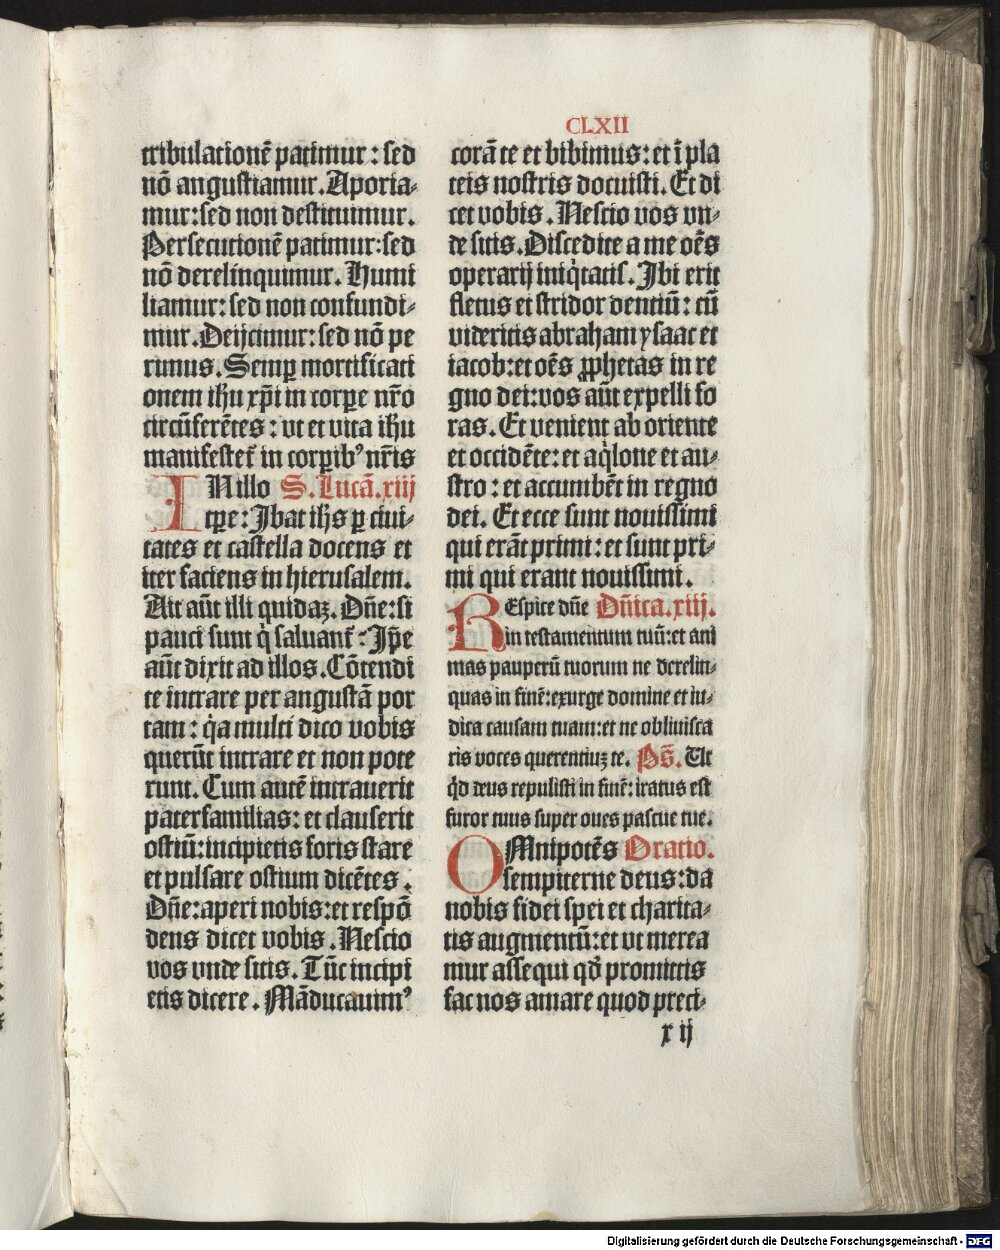 CLXII
tribulationē patimur : sed
nō angustiamur. Aporia⸗
mur: sed non destituimur.
Persecutionē patimur: sed
nō derelinquimur. Humi
liamur: sed non confundi⸗
mur. Deijcimur: sed nō pe
rimus. Semꝑ mortificati
onem ihu xp̄i in corpe nr̄o
circūferētes : vt et vita ihu
manifestet᷑ in corpib⁹ nr̄is
INillo S. Lucā. xiij
tꝑe: Ibat ihs ꝑ ciui⸗
tates et castella docens et
iter faciens in hierusalem.
Ait aūt illi quidaꝫ. Dn̄e: si
pauci sunt q̇ saluant᷑: Ip̄e
aūt dixit ad illos. Cōtendi
te intrare per angustā por
tam : q̇a multi dico vobis
querūt intrare et non pote
runt. Cum autē intrauerit
paterfamilias: et clauserit
ostiū: incipietis foris stare
et pulsare ostium dicētes.
Dn̄e: aperi nobis: et respō
dens dicet vobis. Nescio
vos vnde sitis. Tūc incipi
etis dicere. Māducauim⁹
corā te et bibimus: et ī pla
teis nostris docuisti. Et di
cet vobis. Nescio vos vn⸗
de sitis. Discedite a me oēs
operarij iniq̇tatis. Ibi erit
fletus et stridor dentiū: cū
videritis abraham ysaac et
iacob: et oēs ꝓphetas in re
gno dei: vos aūt expelli fo
ras. Et venient ab oriente
et occidēte: et aq̇lone et au⸗
stro: et accumbēt in regno
dei. Et ecce sunt nouissimi
qui erāt primi: et sunt pri⸗
mi qui erant nouissimi.
REspice dn̄e Dn̄ica. xiij.
in testamentum tuū: et ani
mas pauperū tuorum ne derelin⸗
quas in finē: exurge domine et iu⸗
dica causam tuam: et ne obliuisca
ris voces querentiuꝫ te. Ps̄. Vt
qd deus repulisti in finē: iratus est
furor tuus super oues pascue tue.
OMnipotēs Oratio.
sempiterne deus: da
nobis fidei spei et charita⸗
tis augmentū: et vt merea
mur assequi qd̄ promittis
fac nos amare quod preci⸗
x ij
Digitalisierung gefördert durch die Deutsche Forschungsgemeinschaft - DFG